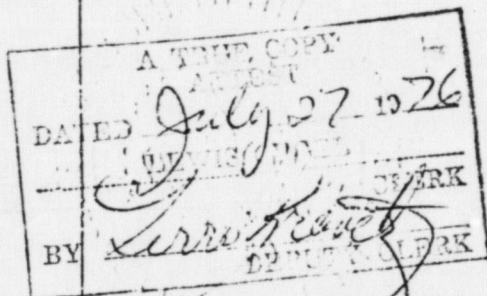 A TRUE COPY
ATTEST
DATED July 27 1976
CLERK
BY
DEPUTY CLERK